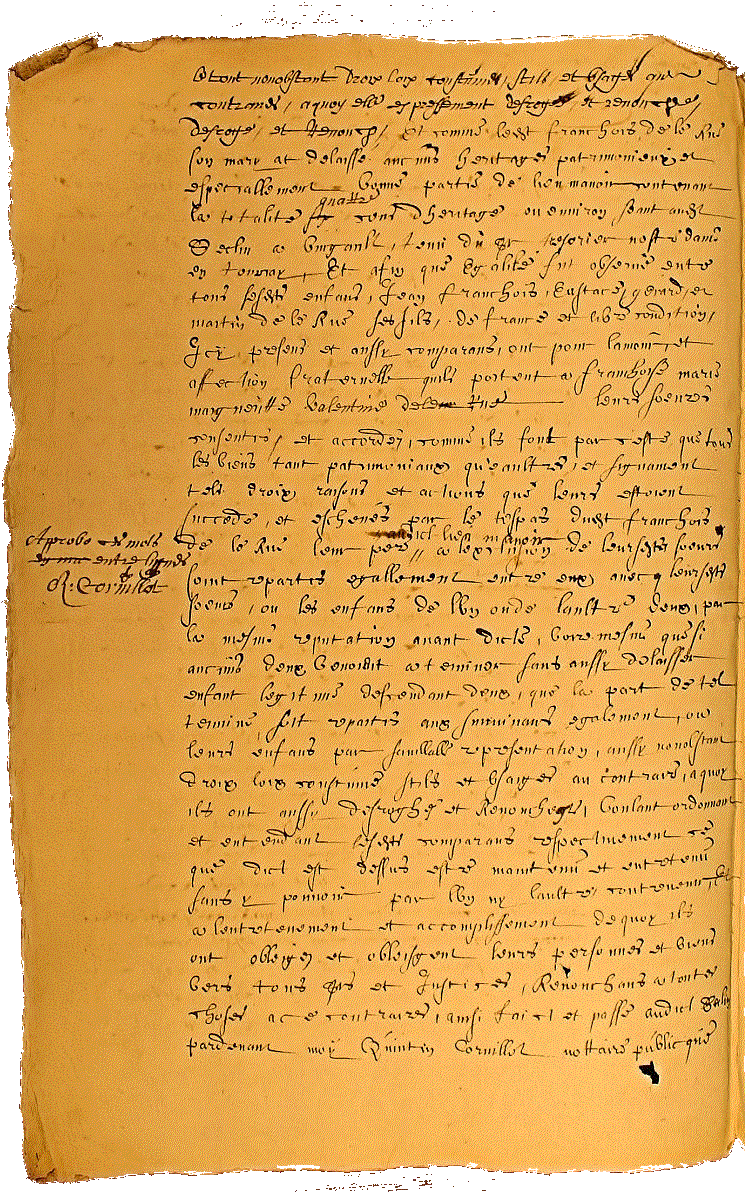 et tout nonobstant droix loix coustumes, stils et usages au
contraires, a quoy elle expressement desroge et renonche
desroge, et Renonch, Et comme ledt franchois de le Rue
son mary at delaisse aucuns heritages patrimonieux et
especiallement bonne partie de lieu manoir contenant
la totalite quattre cens d'heritage ou environ seant audt
Seclin a Burgault, tenu du tresorier nostre dame
en tournay, Et afin que egalité fut observée entre
tous sesdts enfans, Jean franchois, Eustace, gerard, et
martin de le Rue ses fils, de france et libre condition,
Icy presens et aussy comparans, ont pour lamour et
affection fraternelle quils portent a franchoise marie
maigneutte Valentine dele Rue leurs soeures
consentis, et accordez, comme ils font par ceste que tous
les biens tant patrimoniaux qu'eaultres, et signament
tels droix raisons et actions que leurs estoient
succede, et escheues par le trespas dudt franchois
dict lieu manoir
de le Rue leur pere a lexclusion de leursdts soeurs
Approbo ces mots
entre lignes
Q. Cornillot
soient repartis egallement entre eux avecq leursdts
soeurs, ou les enfans de lun ou de laultre deux, par
la mesme reputation avant dicte, voire mesme que si
aucuns deux venoient a terminer sans aussy delaisser
enfant legitime descendant deux, que la part de tel
terminé, soit repartis aux survivans egalement, ou
leurs enfans par samllable representation, aussy nonobstant
droix loix coustumes stils et usaiges au contraire, a quoy
ils ont aussy desroghez et Renonchez, Voulant ordonnant
et entendant lesdts comparans respectivement ce
que dict est dessus estre maintenu et entretenu
sans y pouvoir par lun ny laultre contrevenir, Et
a lentretenement et accomplissement de quoy ils
ont obligez et obleisgent leurs personnes et biens
vers tous et Justices, Renonchans a toutes
choses a ce contraires, ainsi faict et passé audict Seclin
pardevant moy Quintin Cornillot nottaire publicque